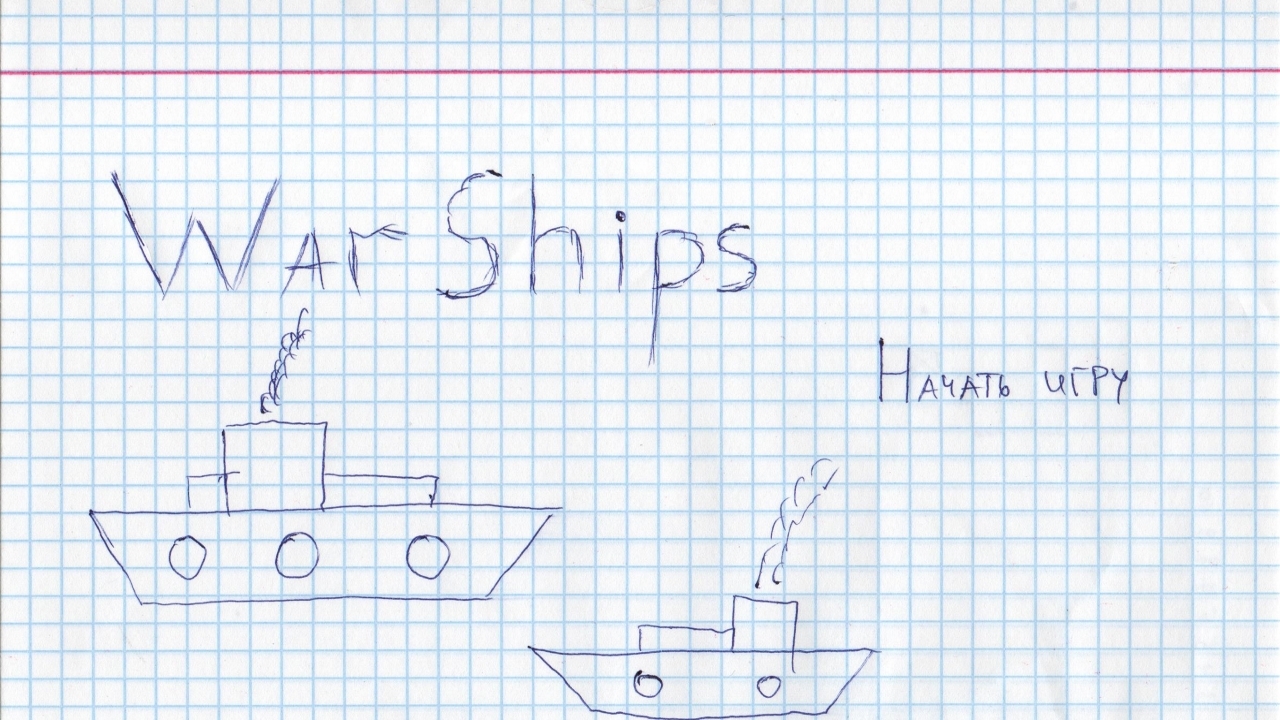 War Ships
Начать игру